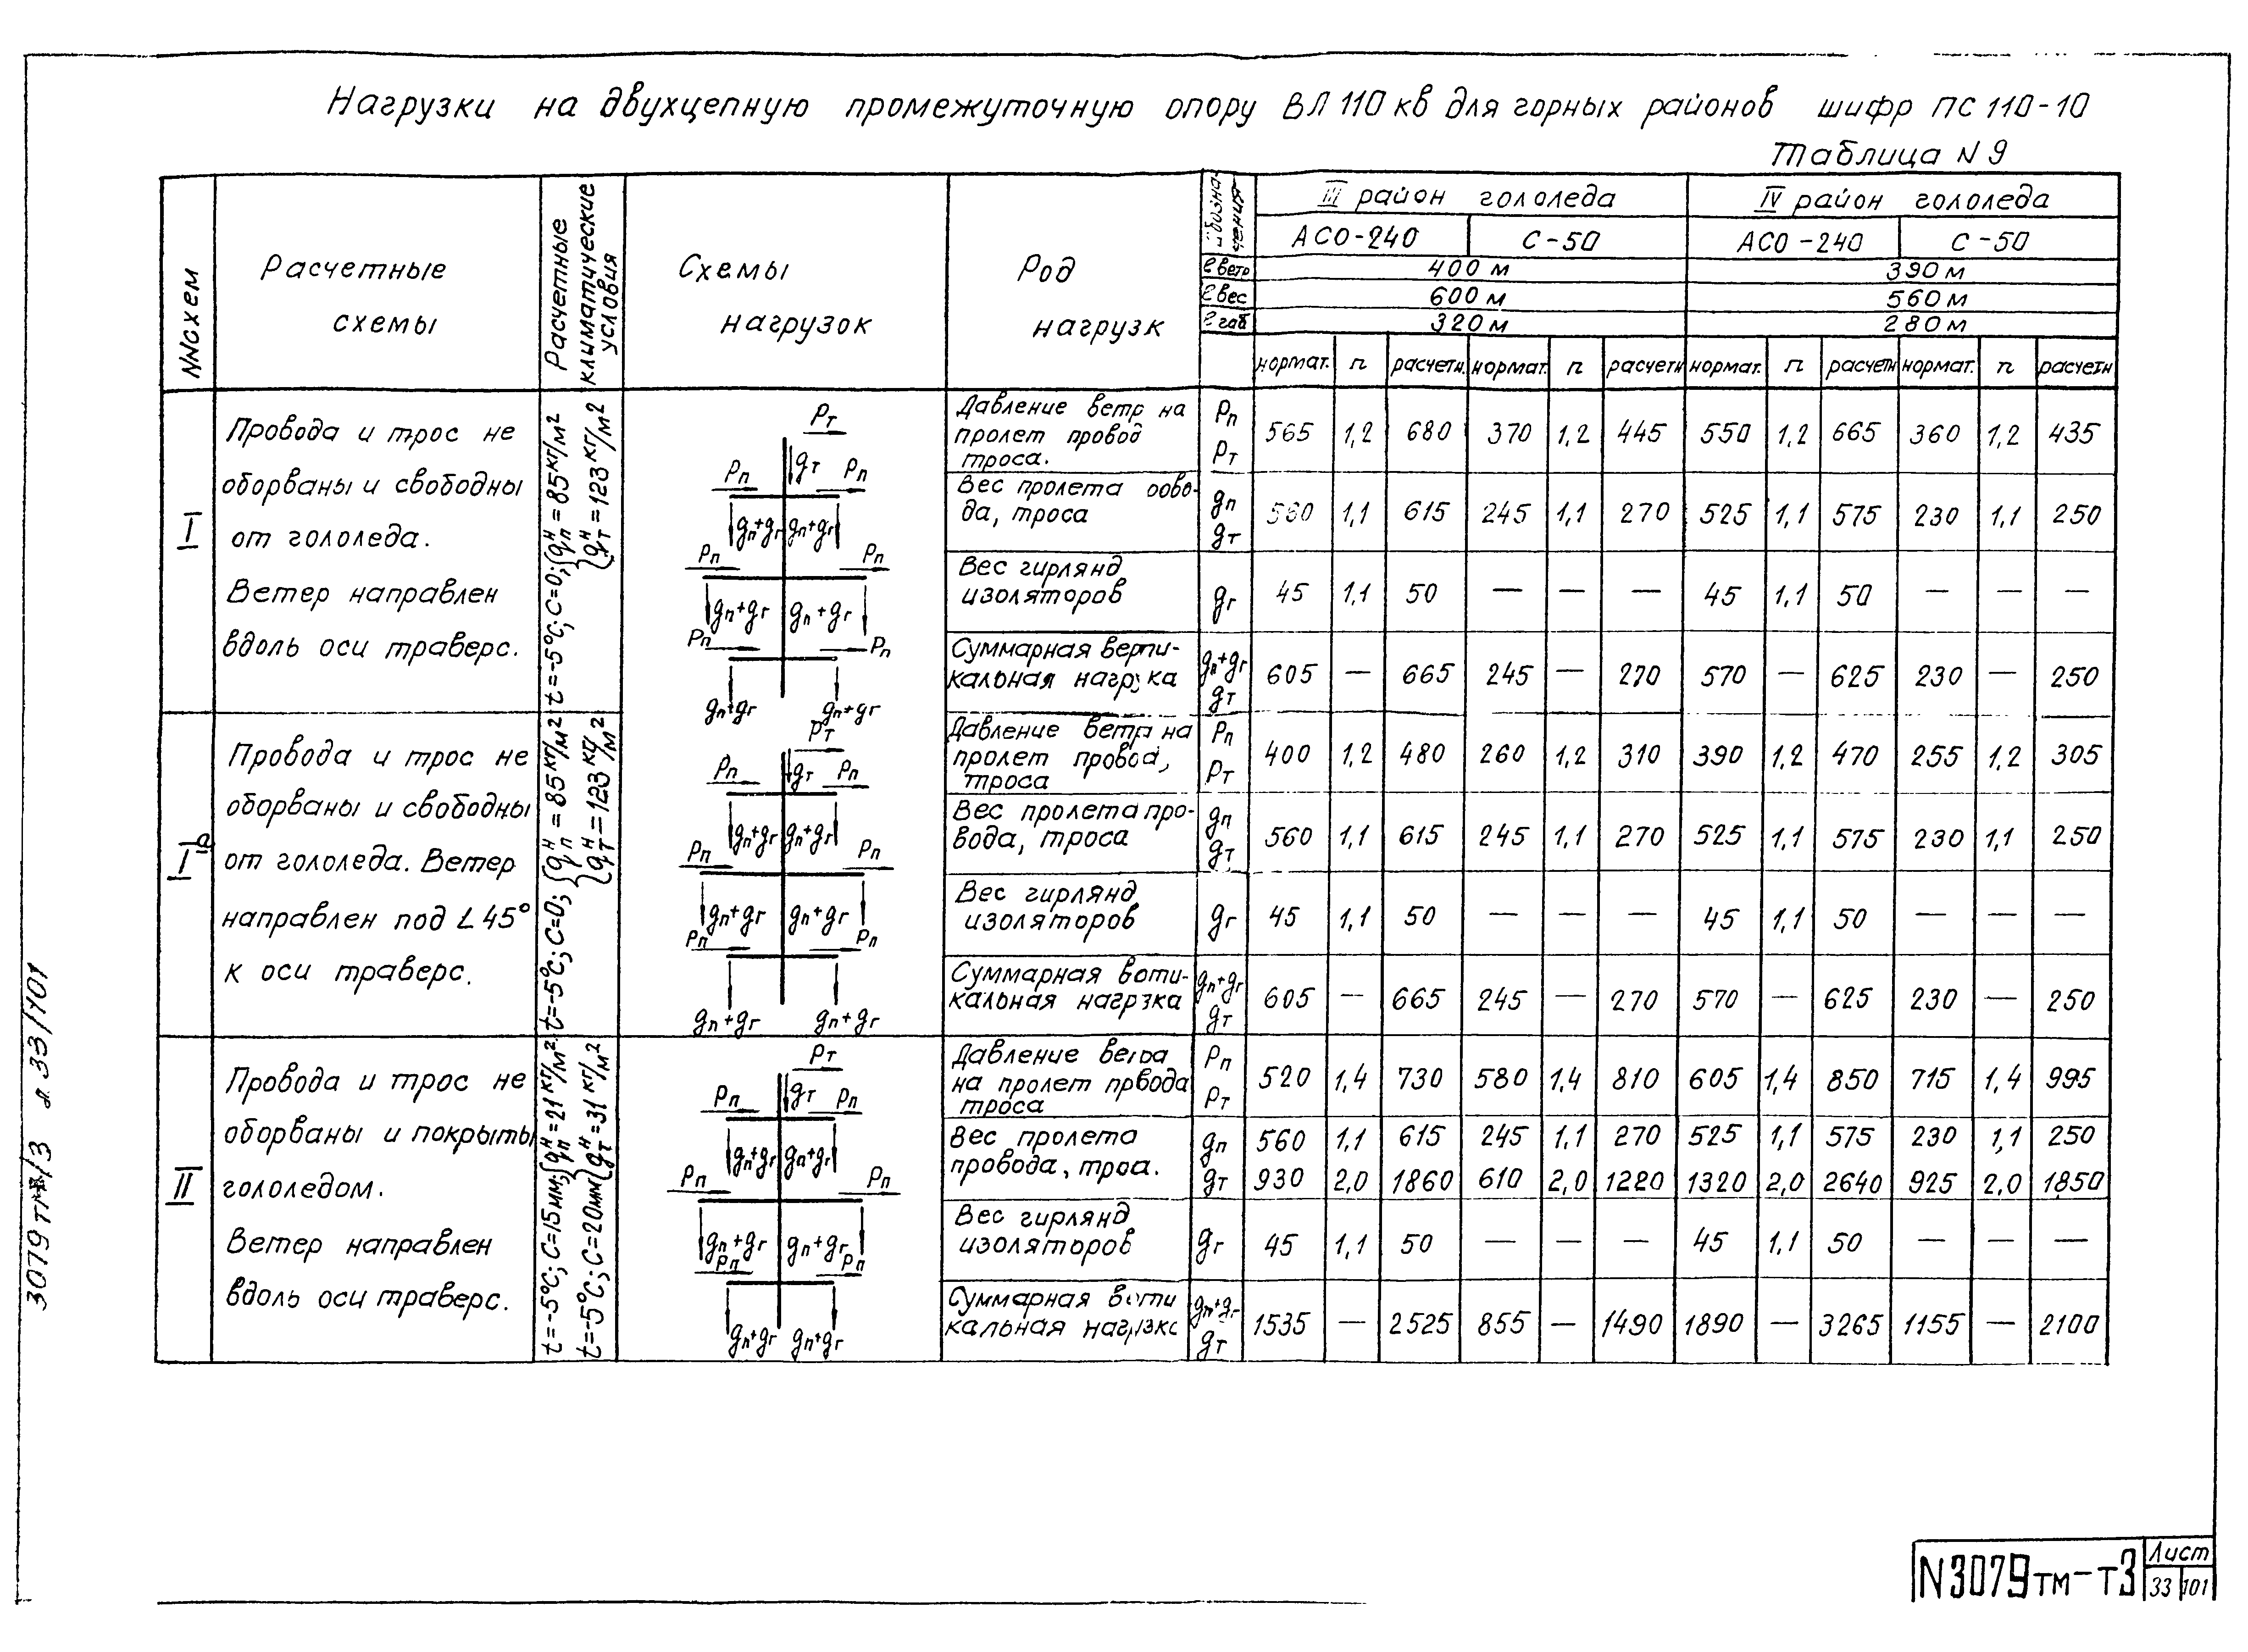 Нагрузки на двухцепную промежуточную опору ВЛ 110 кв для горных районов шифр ПС 110-10
Таблица N 9
NNсхем
Расчетные схемы
Расчетные климатические условия
Схемы нагрузок
Род нагрузк
III район гололеда IV район гололеда
АСО-240 С-50 АСО-240 С-50
ℓ ветр 400 м 390 м
ℓ вес 600 м 560 м
ℓ габ 320 м 280 м
нормат. n расчетн. нормат. n расчетн нормат. n расчетн нормат. n расчетн
I
Провода и трос не
оборваны и свободны
от гололеда.
Ветер направлен
вдоль оси траверс.
t=-5°С; С=0; {gпн = 85 кг/м2
{gтн = 123 кг/м2
Pт
Pп gт Pп
gп+gг gп+gг
Pп Pп
gп+gг gп+gг
Pп Pп
gп+gг gп+gг
Давление ветр на
пролет провод
троса.
Pп
Pт
565 1,2 680 370 1,2 445 550 1,2 665 360 1,2 435
Вес пролета
да, троса
gп
gт
560 1,1 615 245 1,1 270 525 1,1 575 230 1,1 250
Вес гирлянд
изоляторов
gг 45 1,1 50 — — — 45 1,1 50 — — —
Суммарная верти-
кальная нагр ка
gп+gг
gт
605 — 665 245 — 270 570 — 625 230 — 250
Iа
Провода и трос не
оборваны и свободны
от гололеда. Ветер
направлен под ∠ 45°
к оси траверс.
t=-5°С; С=0; {gпн = 85 кг/м2
{gтн = 123 кг/м2
Pт
Pп gт Pп
gп+gг gп+gг
Pп Pп
gп+gг gп+gг
Pп Pп
gп+gг gп+gг
Давление ветр на
пролет провод,
троса
Pп
Pт
400 1,2 480 260 1,2 310 390 1,2 470 255 1,2 305
Вес пролета про-
вода, троса
gп
gт
560 1,1 615 245 1,1 270 525 1,1 575 230 1,1 250
Вес гирлянд
изоляторов
gг 45 1,1 50 — — — 45 1,1 50 — — —
Суммарная воти-
кальная нагрзка
gп+gг
gт
605 — 665 245 — 270 570 — 625 230 — 250
II
Провода и трос не
оборваны и покрыты
гололедом.
Ветер направлен
вдоль оси траверс.
t=-5°С; С=15мм; {gпн = 21 кг/м2
t=-5°С; С=20мм {gтн = 31 кг/м2
Pт
Pп gт Pп
gп+gг gп+gг
Pп Pп
gп+gг gп+gг
Pп Pп
gп+gг gп+gг
Давление
на пролет првода
троса
Pп
Pт
520 1,4 730 580 1,4 810 605 1,4 850 715 1,4 995
Вес пролета
провода, троа.
gп 560 1,1 615 245 1,1 270 525 1,1 575 230 1,1 250
gт 930 2,0 1860 610 2,0 1220 1320 2,0 2640 925 2,0 1850
Вес гирлянд
изоляторов
gг 45 1,1 50 — — — 45 1,1 50 — — —
Суммарная в ти
кальная
gп+gг
gт
1535 — 2525 855 — 1490 1890 — 3265 1155 — 2100
N3079тм-т3
Лист
33 101